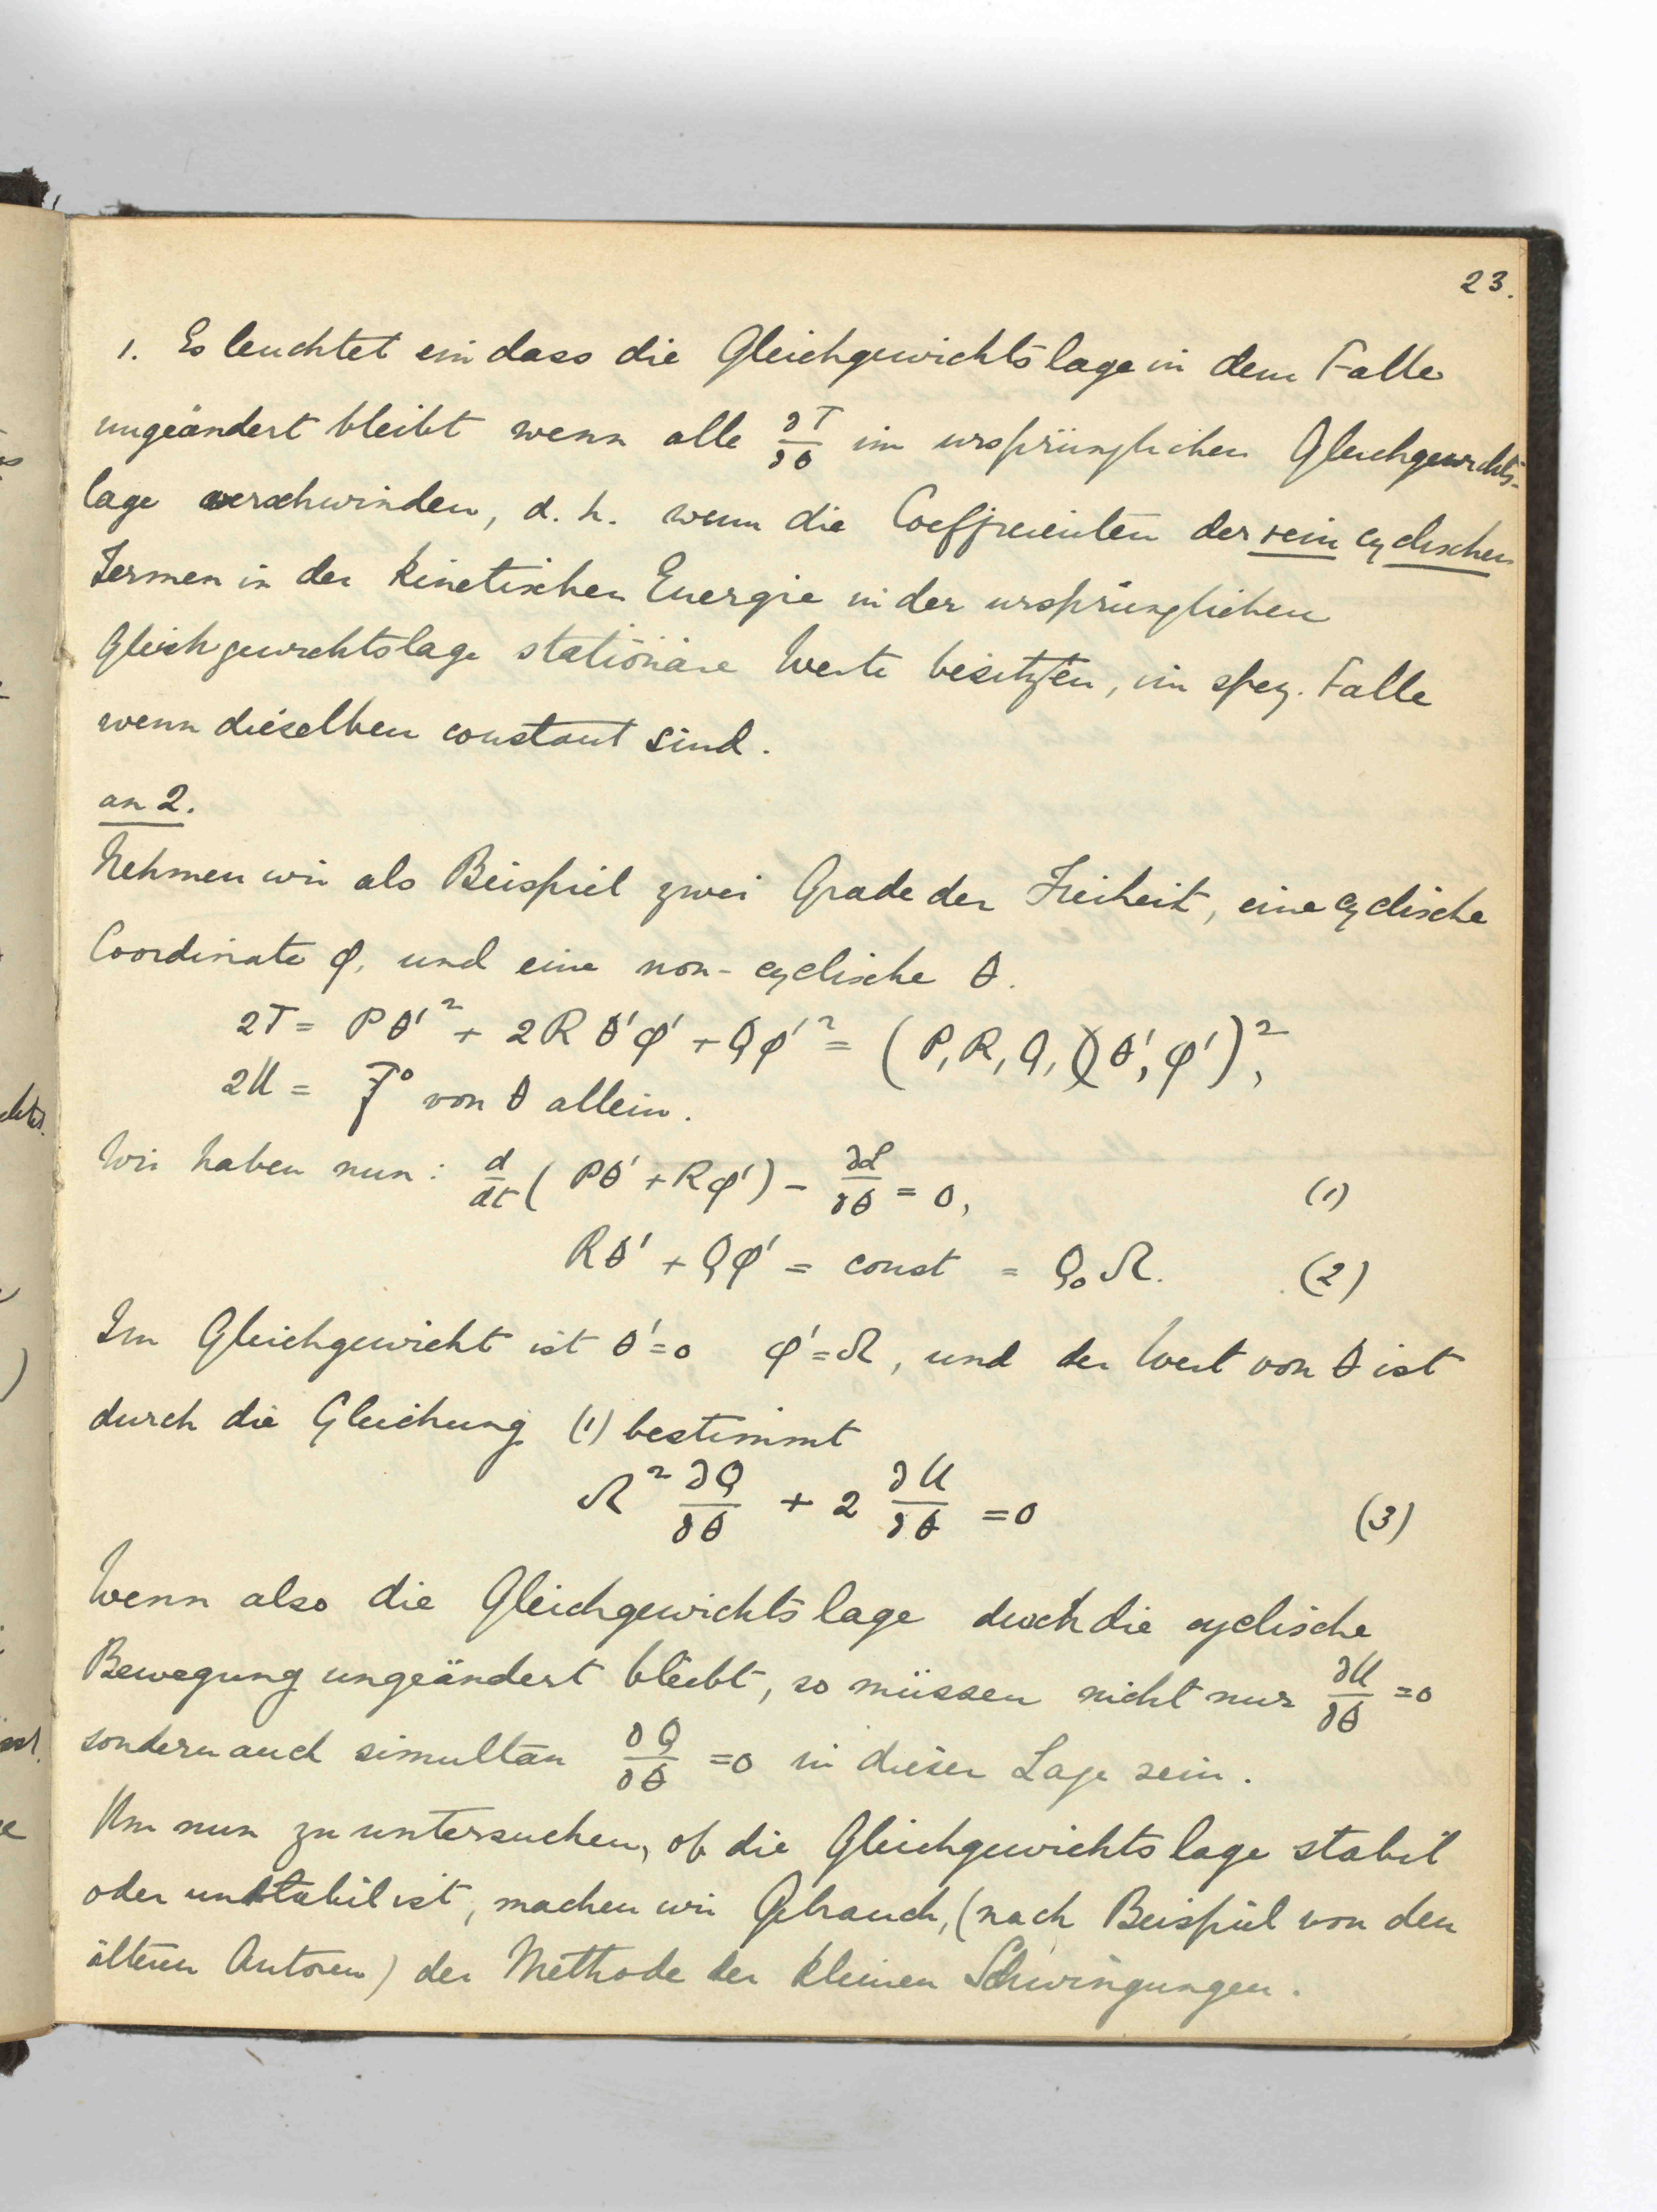 23.
1. Es leuchtet ein dass die Gleichgewichtslage in dem Falle
ungeändert bleibt wenn alle ∂T/∂θ im ursprünglichen Gleichgewichts-
lage verschwinden, d. h. wenn die Coefficienten der rein cyclischen
Termen in der kinetischen Energie in der ursprünglichen
Gleichgewichtslage stationäre Werte besitzten, im spez. Falle
wenn dieselben constant sind.
an 2.
Nehmen wir als Beispiel zwei Grade der Freiheit, eine cyclische
Coordinate φ, und eine non-cyclische θ.
2T = Pθ'² + 2Rθ'φ' + Qφ'² = (P, R, Q,)(θ', φ')²,
2U = F° von θ allein.
Wir haben nun: d/dt (Pθ' + Rφ') − ∂L/∂θ = 0, (1)
Rθ' + Qφ' = const = Q₀Ω. (2)
Im Gleichgewicht ist θ'=0 φ'=Ω, und der Wert von θ ist
durch die Gleichung (1) bestimmt
Ω² ∂Q/∂θ + 2 ∂U/∂θ = 0 (3)
Wenn also die Gleichgewichtslage durch die cyclische
Bewegung ungeändert bleibt, so müssen nicht nur ∂U/∂θ = 0
sondern auch simultan ∂Q/∂θ = 0 in dieser Lage sein.
Um nun zu untersuchen, ob die Gleichgewichtslage stabil
oder unstabil ist, machen wir Gebrauch, (nach Beispiel von den
älteren Autoren) der Methode der kleinen Schwingungen.